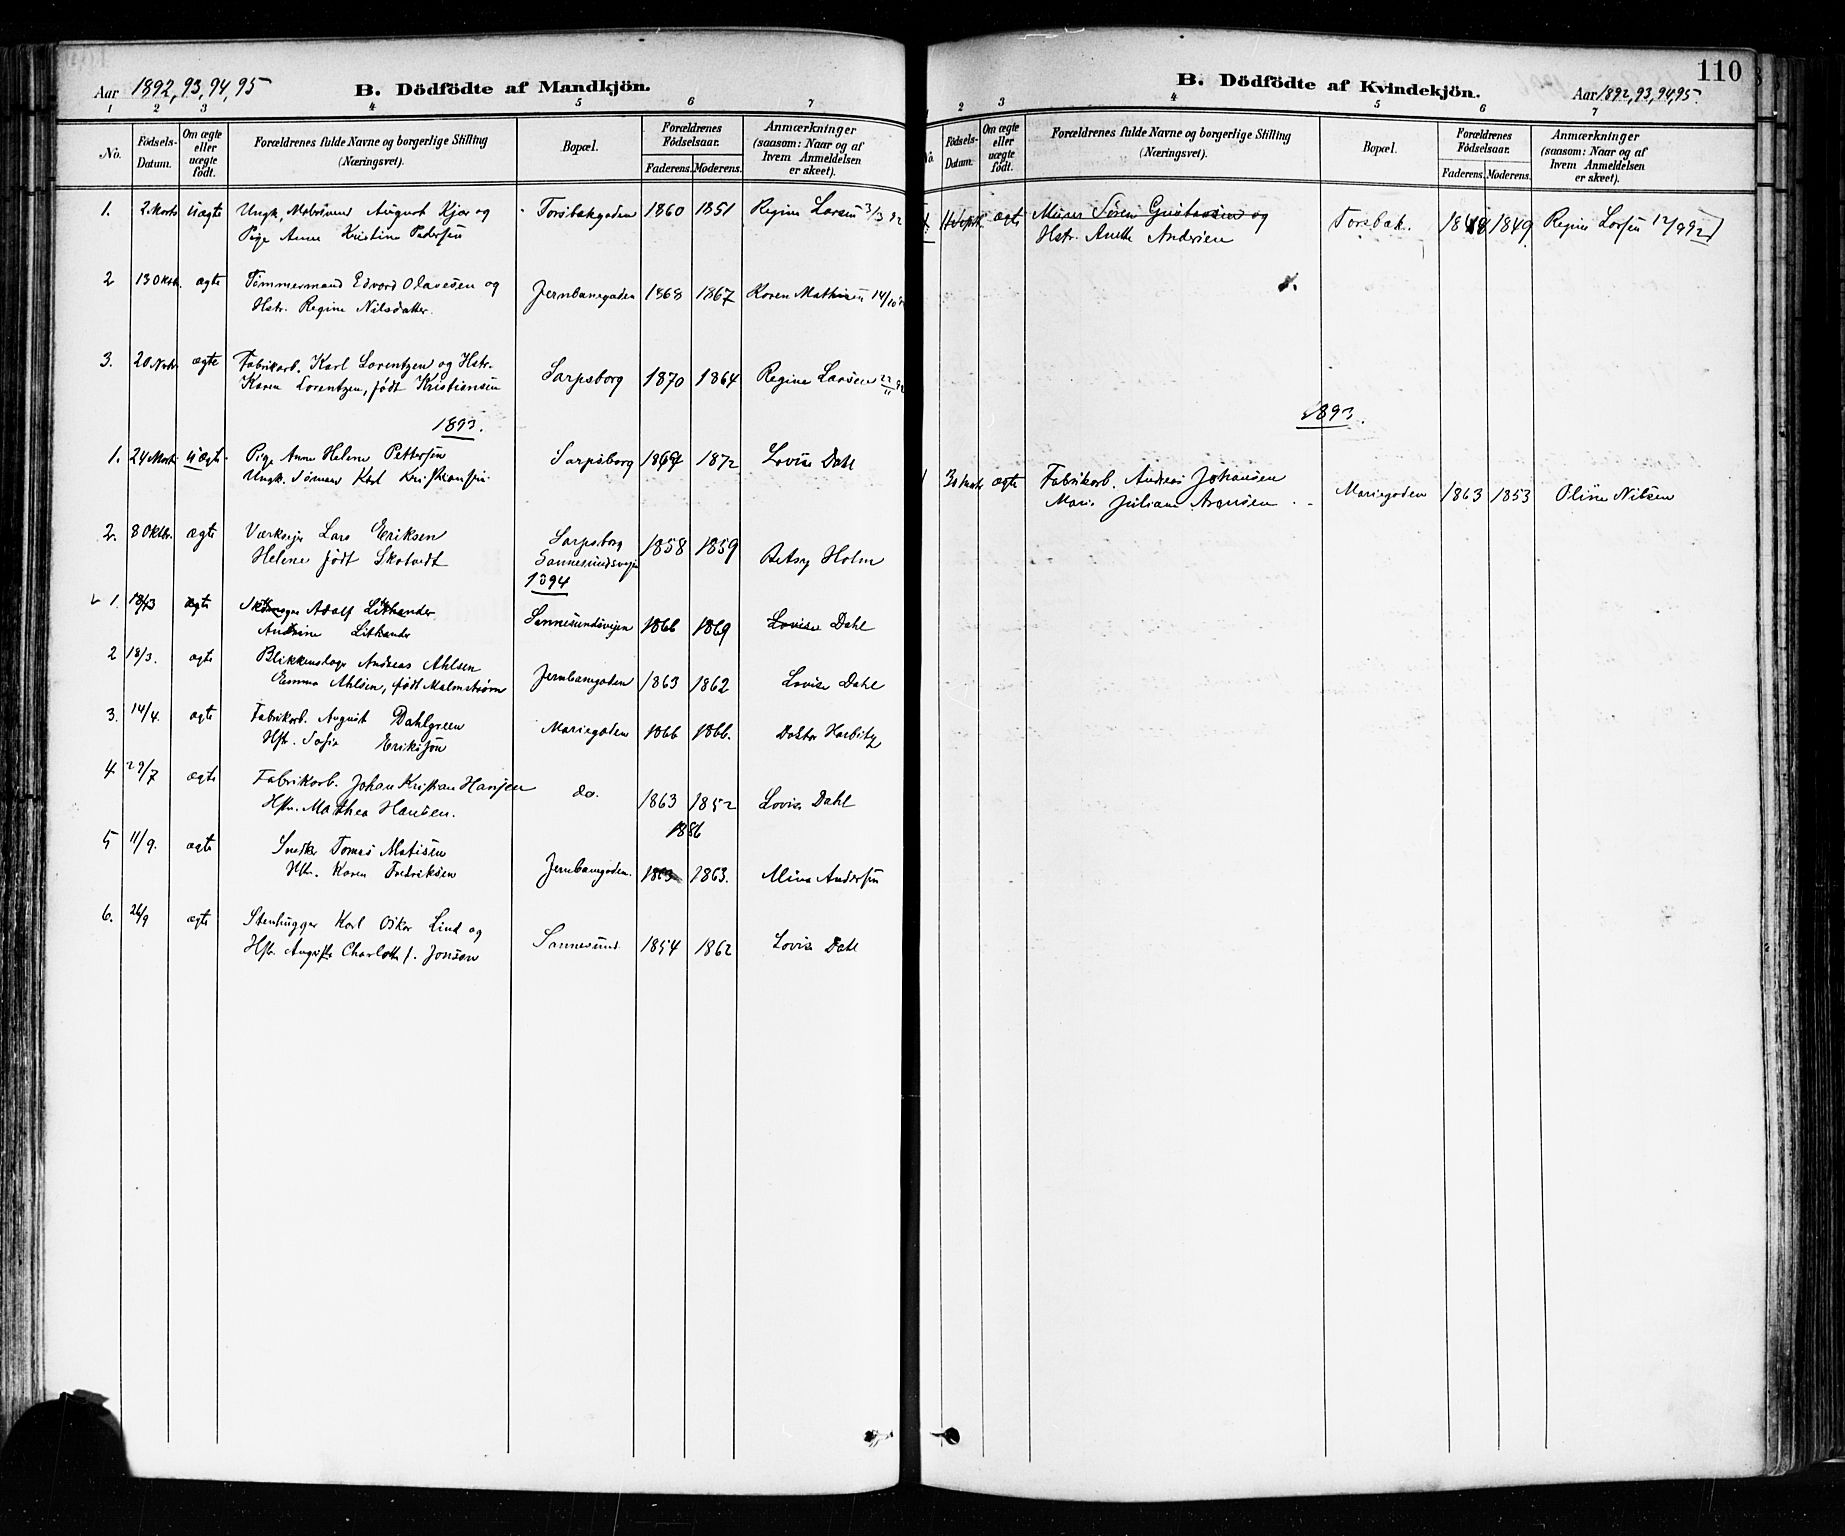 Aar 1892, 93, 94, 95
B. Dödfödte af Mandkjön.
1 2 3 4 5 6 7
No. Födsels-Datum. Om ægte eller uægte födt. Forældrenes fulde Navne og borgerlige Stilling (Næringsvei). Bopæl. Forældrenes Födselsaar. Faderens. Moderens. Anmærkninger (saasom: Naar og af hvem Anmeldelsen er skeet).
1. 2 Marts uægte Ungk. August Kjær og Torsbakgaden 1860 1851 Regine Larsen 3/3 92
Pige Anne Kristine Pedersen
2 13 Oktb. ægte Tømmermand Edvard Olavesen og Jernbanegaden 1868 1867 Karen Mathisen 14/10
Hstr. Regine Nilsdatter.
3. 20 Nvbr ægte Fabrikarb. Karl Lorentzen og Hstr. Sarpsborg 1870 1864 Regine Larsen 22/11 92
Karen Lorentzen, født Kristiansen
1893.
1. 24 Marts uægte Pige Anne Helene Pettersen Sarpsborg 1872 Lovise Dahl
Ungk. Sømand Karl Kristiansen.
2. 8 Oktbr. ægte Værkseier Lars Eriksen Sarpsborg 1858 1859 Betsy Holm
Helene født Skotvedt Sannesundsveien
1894
1. 18/3 ægte Adolf Lithander Sannesundsvejen 1866 1869 Lovise Dahl
Andrine Lithander
2 18/3. ægte Blikkenslager Andreas Ahlsen Jernbanegaden 1863 1862 Lovise Dahl
Emma Ahlsen, født Malmstrøm
3. 14/4. ægte Fabrikarb. August Dahlgreen Mariegaden 1866 1866. Doktor Harbitz
Hstr. Sofie Eriksson
4. 29/7 ægte Fabrikarb. Johan Kristian Hansen do. 1863 1852 Lovise Dahl
Hstr. Mathea Hansen.
1886
5 11/9. ægte Snedker Tomas Matisen Jernbanegaden. 1863 1863. Mina Andersen
Hstr. Karen Fredriksen
6. 26/9 ægte Stenhugger Karl Oskar Lind og Sannesund. 1854 1862 Lovise Dahl
Hstr. Augusta Charlotte f. Jonson
110
B. Dödfödte af Kvindekjön.
Aar 1892, 93, 94, 95.
2 3 4 5 6 7
No. Födsels-Datum. Om ægte eller uægte födt. Forældrenes fulde Navne og borgerlige Stilling (Næringsvei). Bopæl. Forældrenes Födselsaar. Faderens. Moderens. Anmærkninger (saasom: Naar og af hvem Anmeldelsen er skeet).
1 ægte Murer Søren Gustavsen og Torsbak. 1849 Regine Larsen 12/9 92
Hstr. Anette Andersen
1893.
1 ægte Fabrikarb. Andreas Johansen Mariegaden 1863 1853 Oline Nilsen
Marie Juliane Arensen